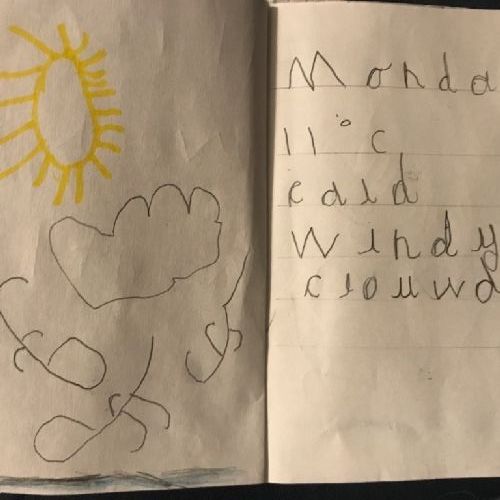 Monda
11°C
cald
windy
clouwd